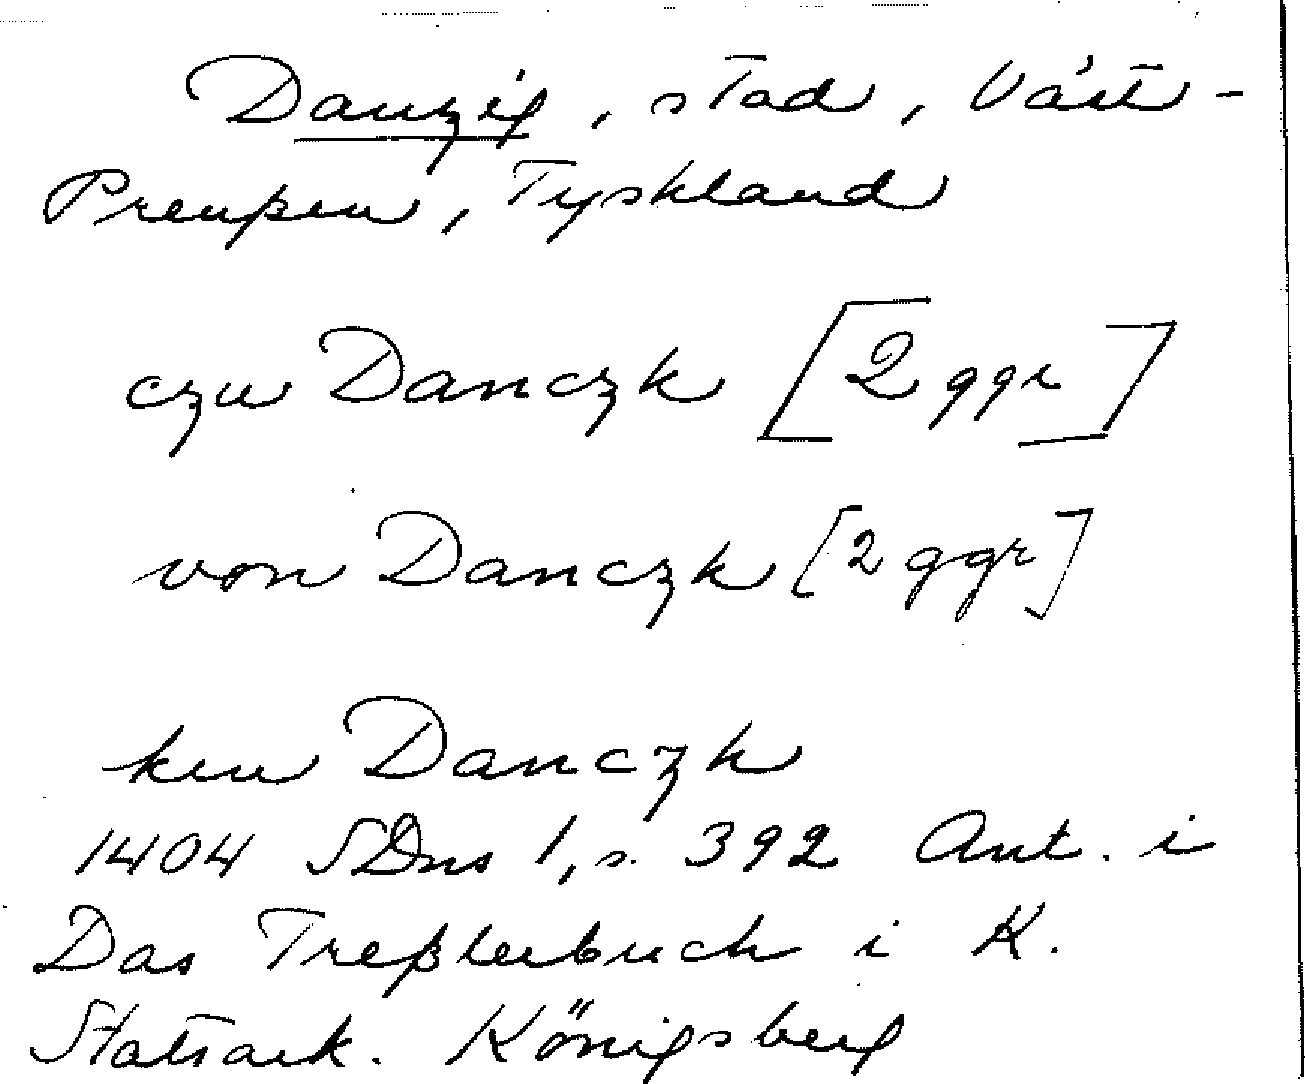 Danzig, stad, Väst-
Preußen, Tyskland
czu Danczk [2 ggr]
von Danczk [2 ggr]
ken Danczk
1404 SDns 1, s. 392 Ant. i
Das Treßlerbuch i K.
Statsark. Königsberg